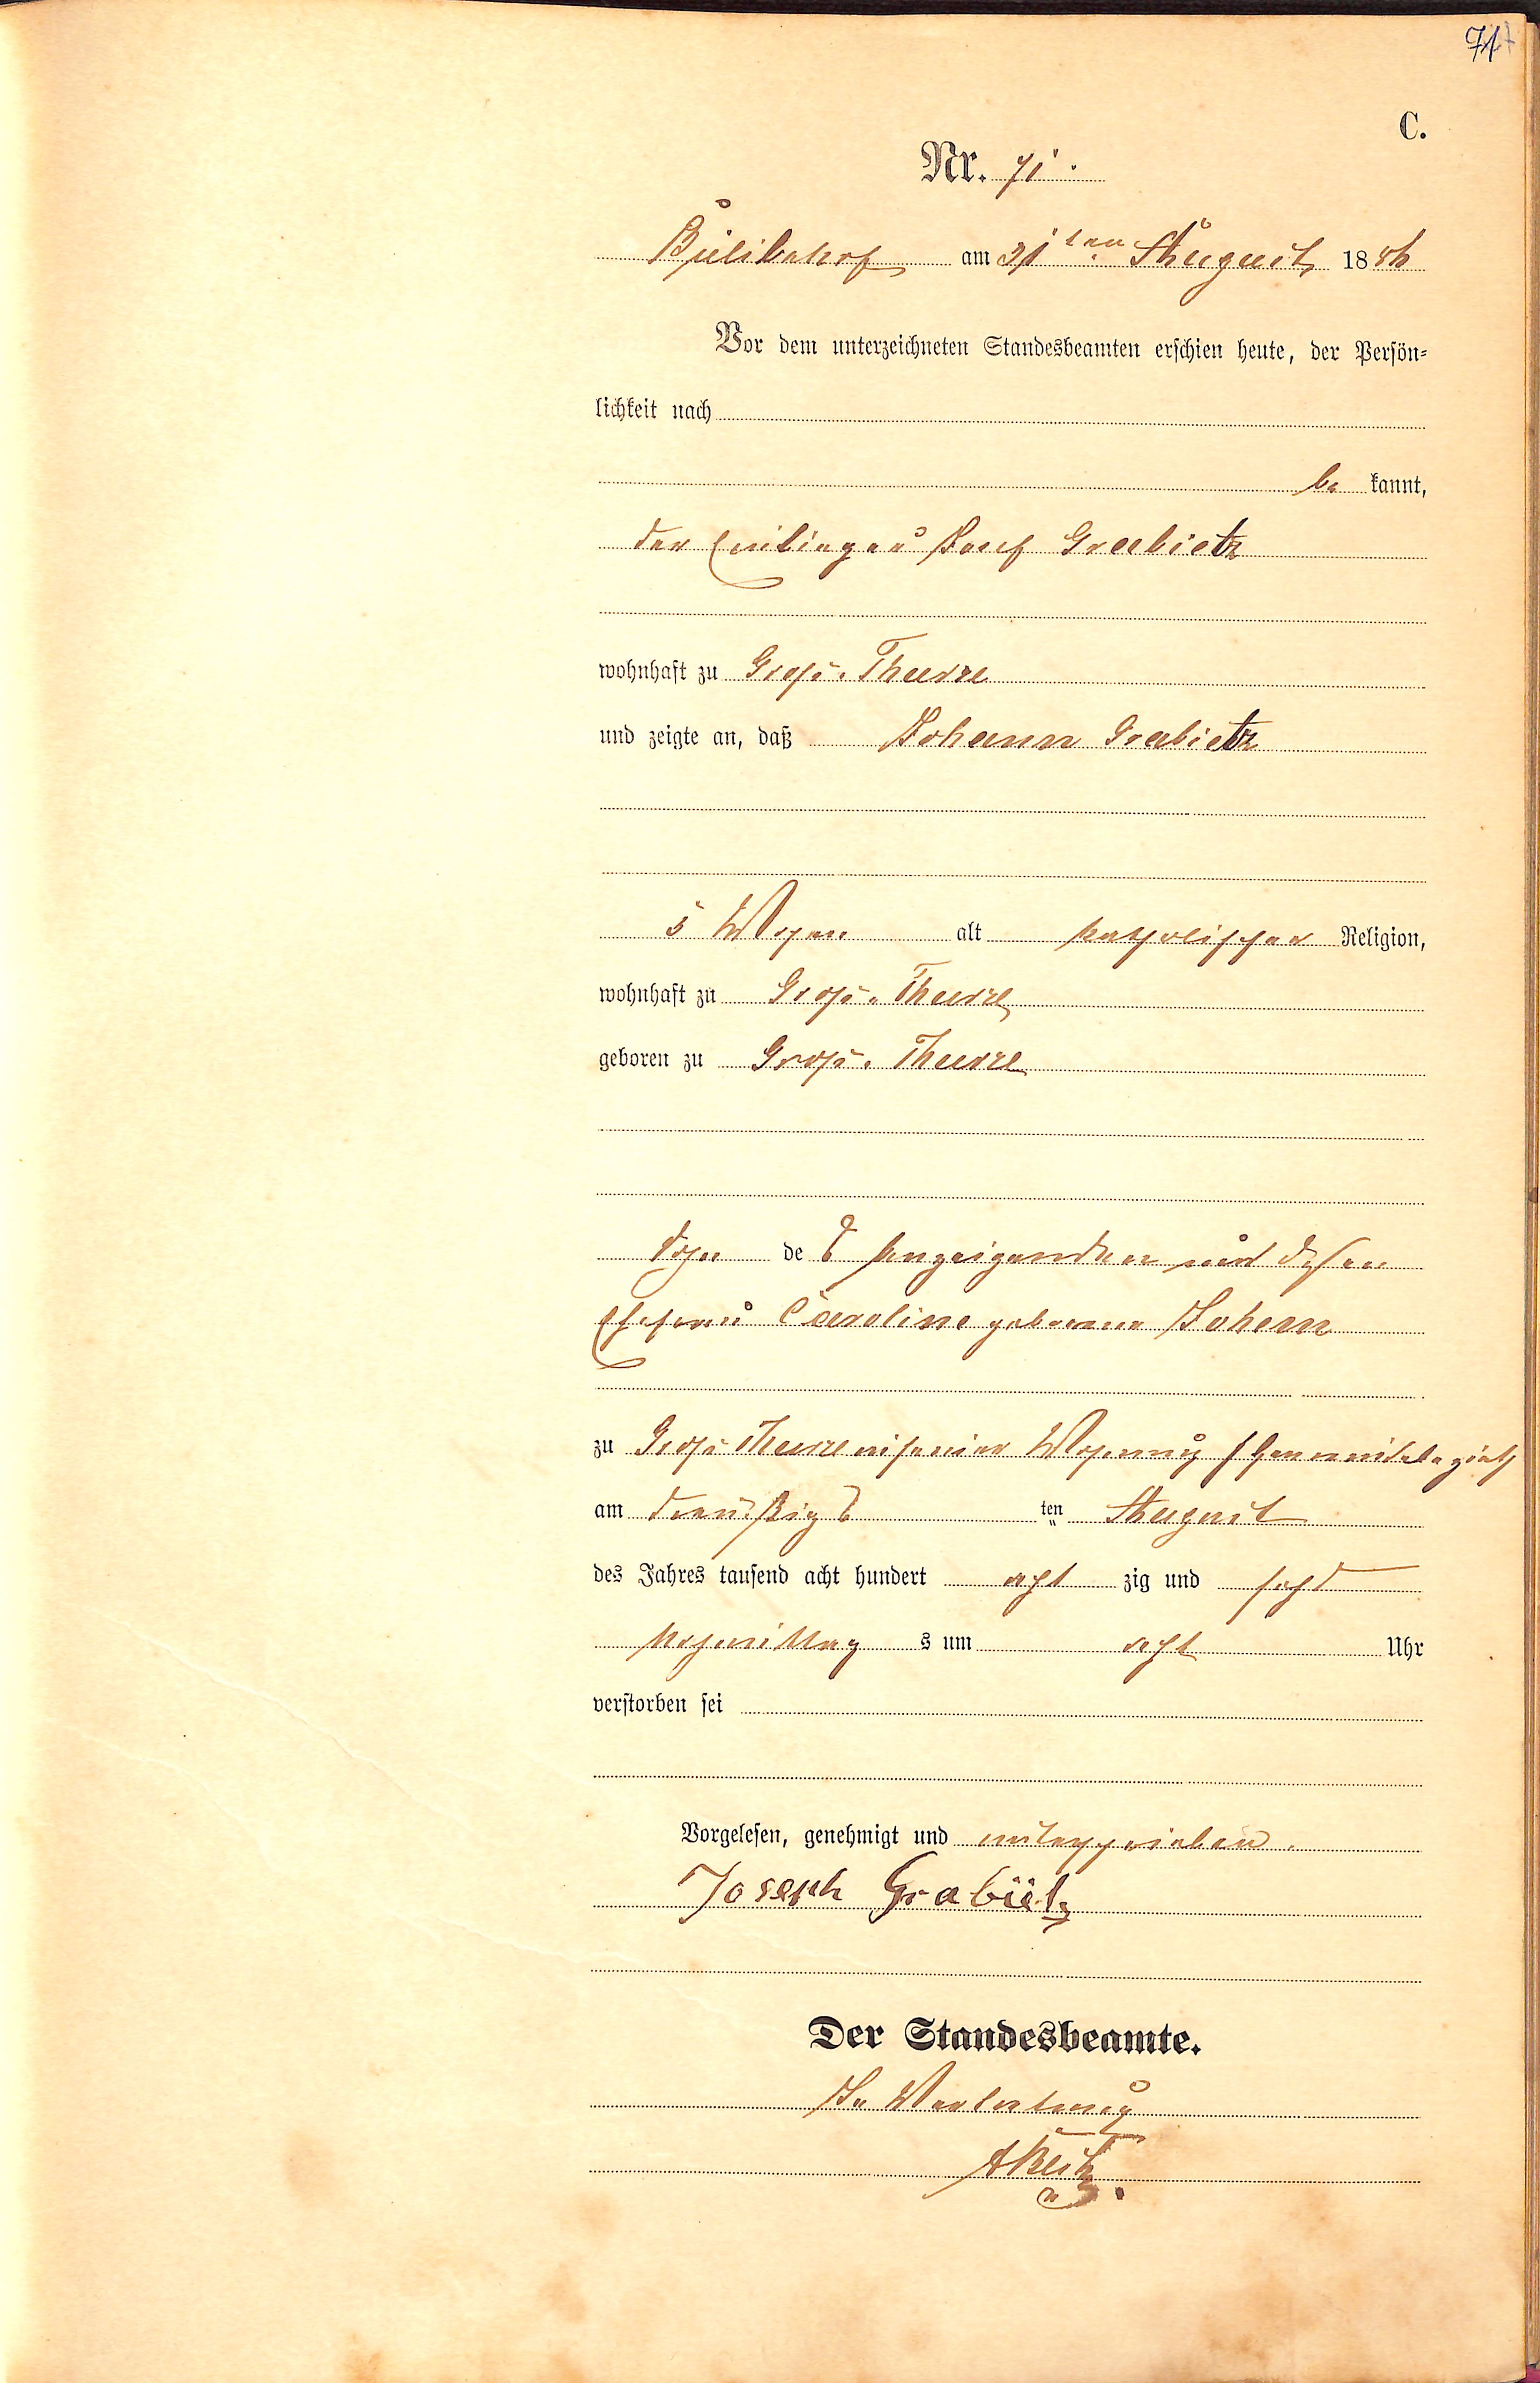 71
C.
Nr. 71.
am 31ten August 1886
Vor dem unterzeichneten Standesbeamten erschien heute, der Persön-
lichkeit nach
be kannt,
der Einlieger Josef Grabietz
wohnhaft zu Groß-Thurze
und zeigte an, daß Johann Grabietz
5 Wochen alt katholischer Religion,
wohnhaft zu Groß-Thurze
geboren zu Groß-Thurze
Sohn des Anzeigenden und dessen
Ehefrau Caroline geborene
zu Groß-Thurze in seiner Wohnung
am dreißigs ten August
des Jahres tausend acht hundert acht zig und sechs
s um acht Uhr
verstorben sei
Vorgelesen, genehmigt und unterschrieben.
Joseph Grabietz
Der Standesbeamte.
In Vertretung